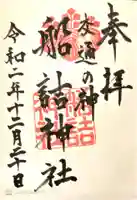 奉拝
交通の神
船詰神社
令和二年十二月二十日